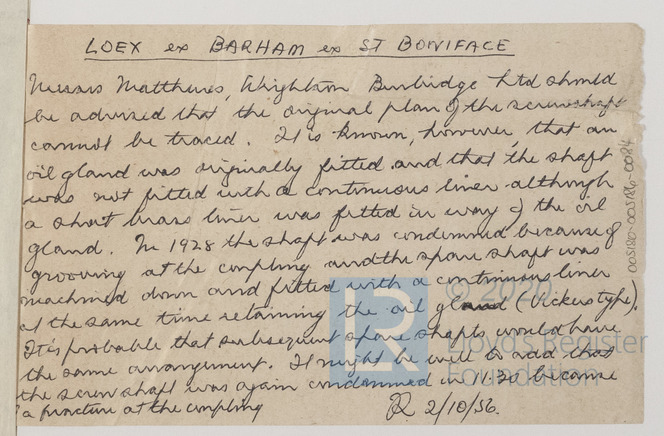 LOEX ex BARHAM ex ST BONIFACE
Messrs Matthews, Wrightson Burbidge Ltd should
be advised that the original plan of the screwshaft
cannot be traced. It is known, however, that an
oil gland was originally fitted and that the shaft
was not fitted with a continuous liner although
a short brass liner was fitted in way of the oil
gland. In 1928 the shaft was condemned because of
grooving at the coupling and the spare shaft was
machined down and fitted with a continuous liner
at the same time retaining the oil gland (Vickers type).
It is probable that subsequent spare shafts would have
the same arrangement. It might be well to add that
the screw shaft was again condemned in 11.30 because
a fracture at the coupling
2/10/56.
005180-005186-0084
© 2020
LR
Lloyd's Register
Foundation